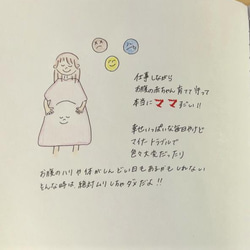 仕事しながら
お腹の赤ちゃん育てて守って
本当にママすごい!!
幸せいっぱいな毎日やけど
マイナートラブルで
色々大変だったり
お腹のハリや体がしんどい日もあるかもしれない
そんな時は絶対ムリしちゃダメだよ!!